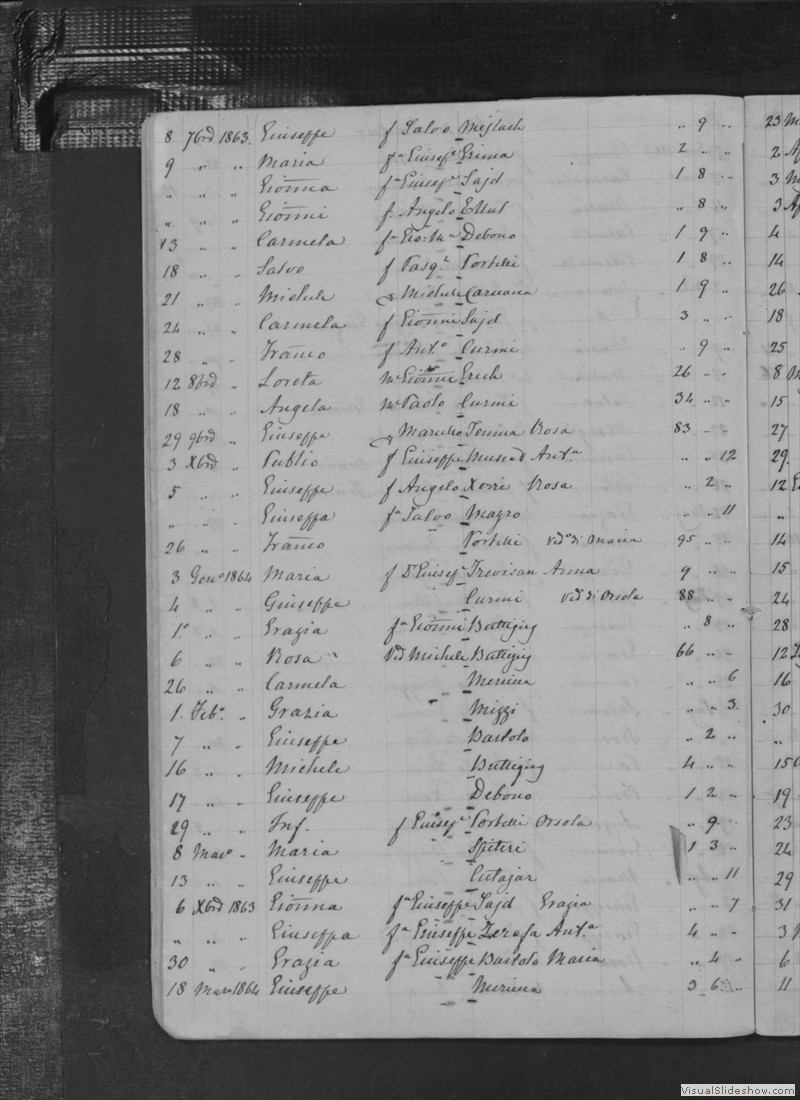 8 7brd 1863 Giuseppe f Salvo Mifsach „ 9 „
9 „ „ Maria fª Giusepe Grima 2 „ „
„ „ „ Gionna fª Giusepe Sajd 1 8 „
„ „ „ Gionni f. Angelo Ellul „ 8 „
13 „ „ Carmela fª Debono 1 9 „
18 „ „ Salvo f Pasqle Portelli 1 8 „
21 „ „ Michele Michele Caruana 1 9 „
24 „ „ Carmela f Gionni Sajd 3 „ „
28 „ „ Franco f Anto Curmi „ 9 „
12 8brd „ Loreta Mª Gionni Grech 26 „ „
18 „ „ Angela Mª Paolo Curmi 34 „ „
29 9brd „ Giuseppe Rosa 83 „ „
3 Xbrd „ Publio f Giuseppe Muscad Antª „ „ 12
5 „ „ Giuseppe f Angelo Xerri Rosa „ 2 „
„ „ „ Giuseppa fª Salvo Magro „ „ 11
26 „ „ Franco Portelli vido di Maria 95 „ „
3 Geno 1864 Maria f Dr Giusepe Trevisan Anna 9 „ „
4 „ „ Giuseppe Curmi vido di Orsola 88 „ „
1º „ „ Grazia fª Gionni Buttigieg „ 8 „
6 „ „ Rosa Vid Michele Buttigieg 66 „ „
26 „ „ Carmela Mercieca „ „ 6
1. Febo „ Grazia Mizzi „ „ 3
7 „ „ Giuseppe Bartolo „ 2 „
16 „ „ Michele Buttigieg 4 „ „
17 „ „ Giuseppe Debono 1 2 „
29 „ „ Inf. f Giusepe Portelli Orsola „ 9 „
8 Maro „ Maria Spiteri 1 3 „
13 „ „ Giuseppe Cutajar „ „ 11
6 Xbrd 1863 Gionna fª Giuseppe Sajd Grazia „ „ 7
„ „ „ Giuseppa fª Giuseppe Zerafa Antª 4 „ „
30 „ „ Grazia fª Giuseppe Bartolo Maria „ 4 „
18 Maro 1864 Giuseppe 3 6 „
23
2
3
3
4
14
26
18
25
8
15
27
29.
12
„
14
15
24
28
12
16
30
„
15
19
23
24
29
31
3
6
11
VisualSlideshow.com